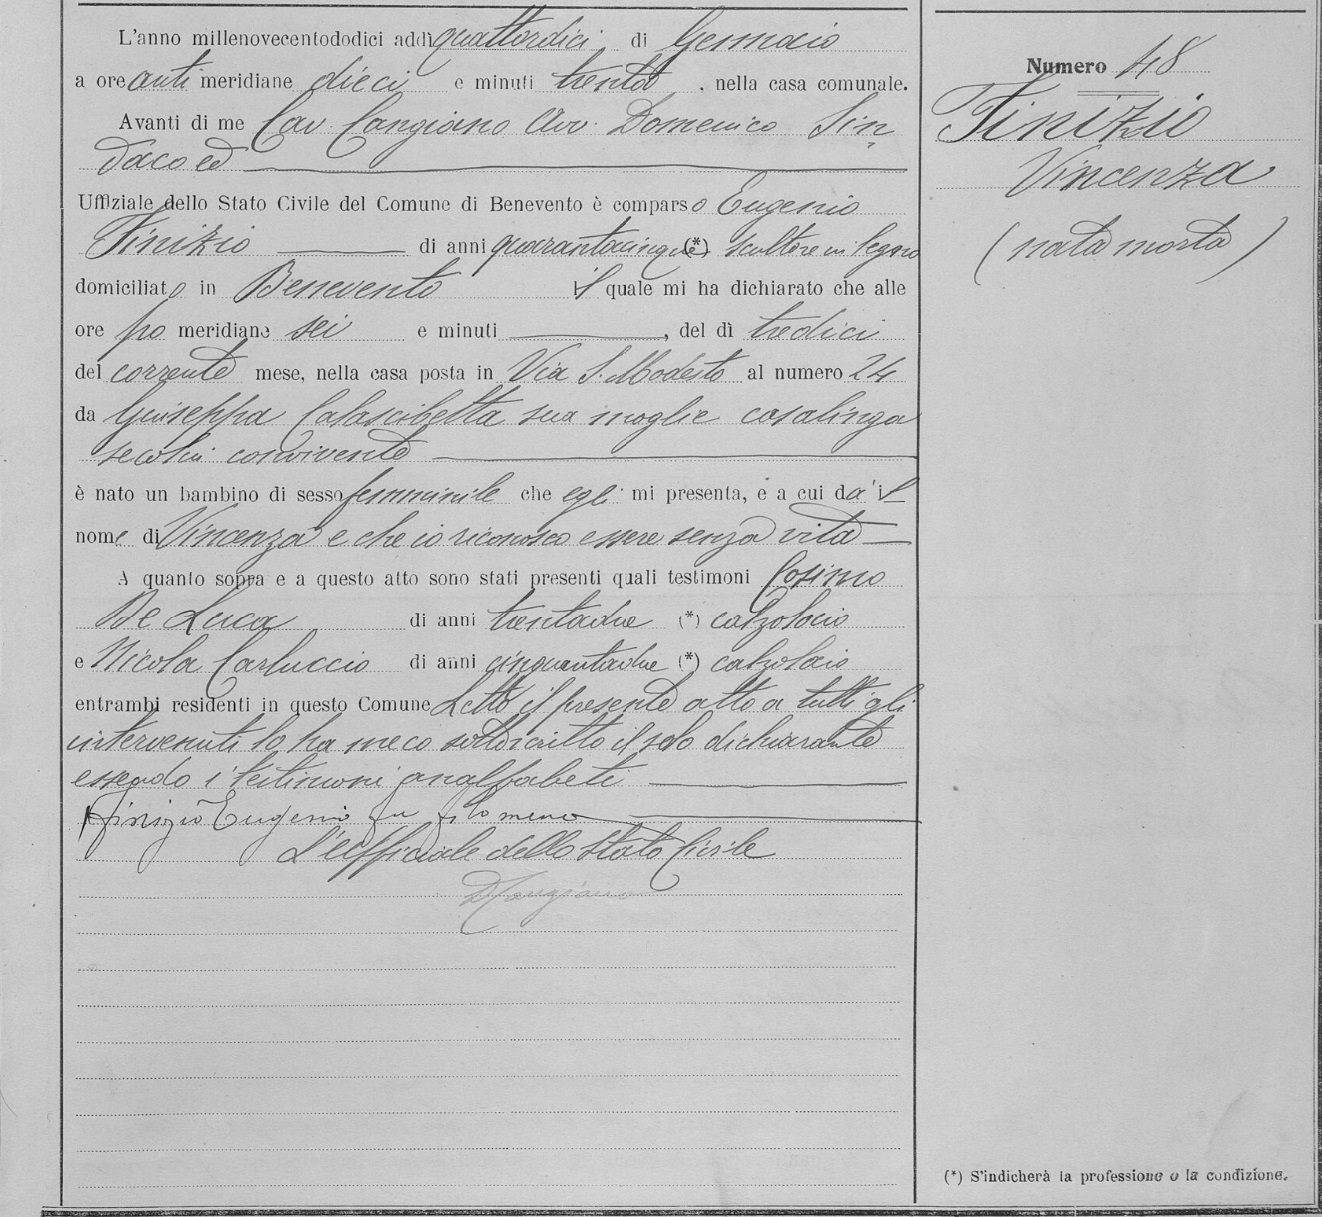 L'anno millenovecentododici addì quattordici di Gennaio
a ore anti meridiane dieci e minuti trenta, nella casa comunale.
Avanti di me Cav Cangiano Avv. Domenico Sin
daco ed
Uffiziale dello Stato Civile del Comune di Benevento è comparso Eugenio
Finizio di anni quarantacinque (*) scultore in legno
domiciliato in Benevento il quale mi ha dichiarato che alle
ore po meridiane sei e minuti , del dì tredici
del corrente mese, nella casa posta in Via S. Modesto al numero 24
da Giuseppa Calascibetta sua moglie casalinga
seco lui convivente
è nato un bambino di sesso femminile che egli mi presenta, e a cui dà il
nome di Vincenza e che io riconosco essere senza vita
A quanto sopra e a questo atto sono stati presenti quali testimoni Cosimo
De Luca di anni trentadue (*) calzolaio
e Nicola Carluccio di anni cinquantadue (*) calzolaio
entrambi residenti in questo Comune Letto il presente atto a tutti gli
intervenuti lo ha meco sottoscritto il solo dichiarante
essendo i testimoni analfabeti
Finizio Eugenio fu Filomeno
L'Ufficiale dello Stato Civile
DCangiano
Numero 48
Finizio
Vincenza
(nata morta)
(*) S'indicherà la professione o la condizione.